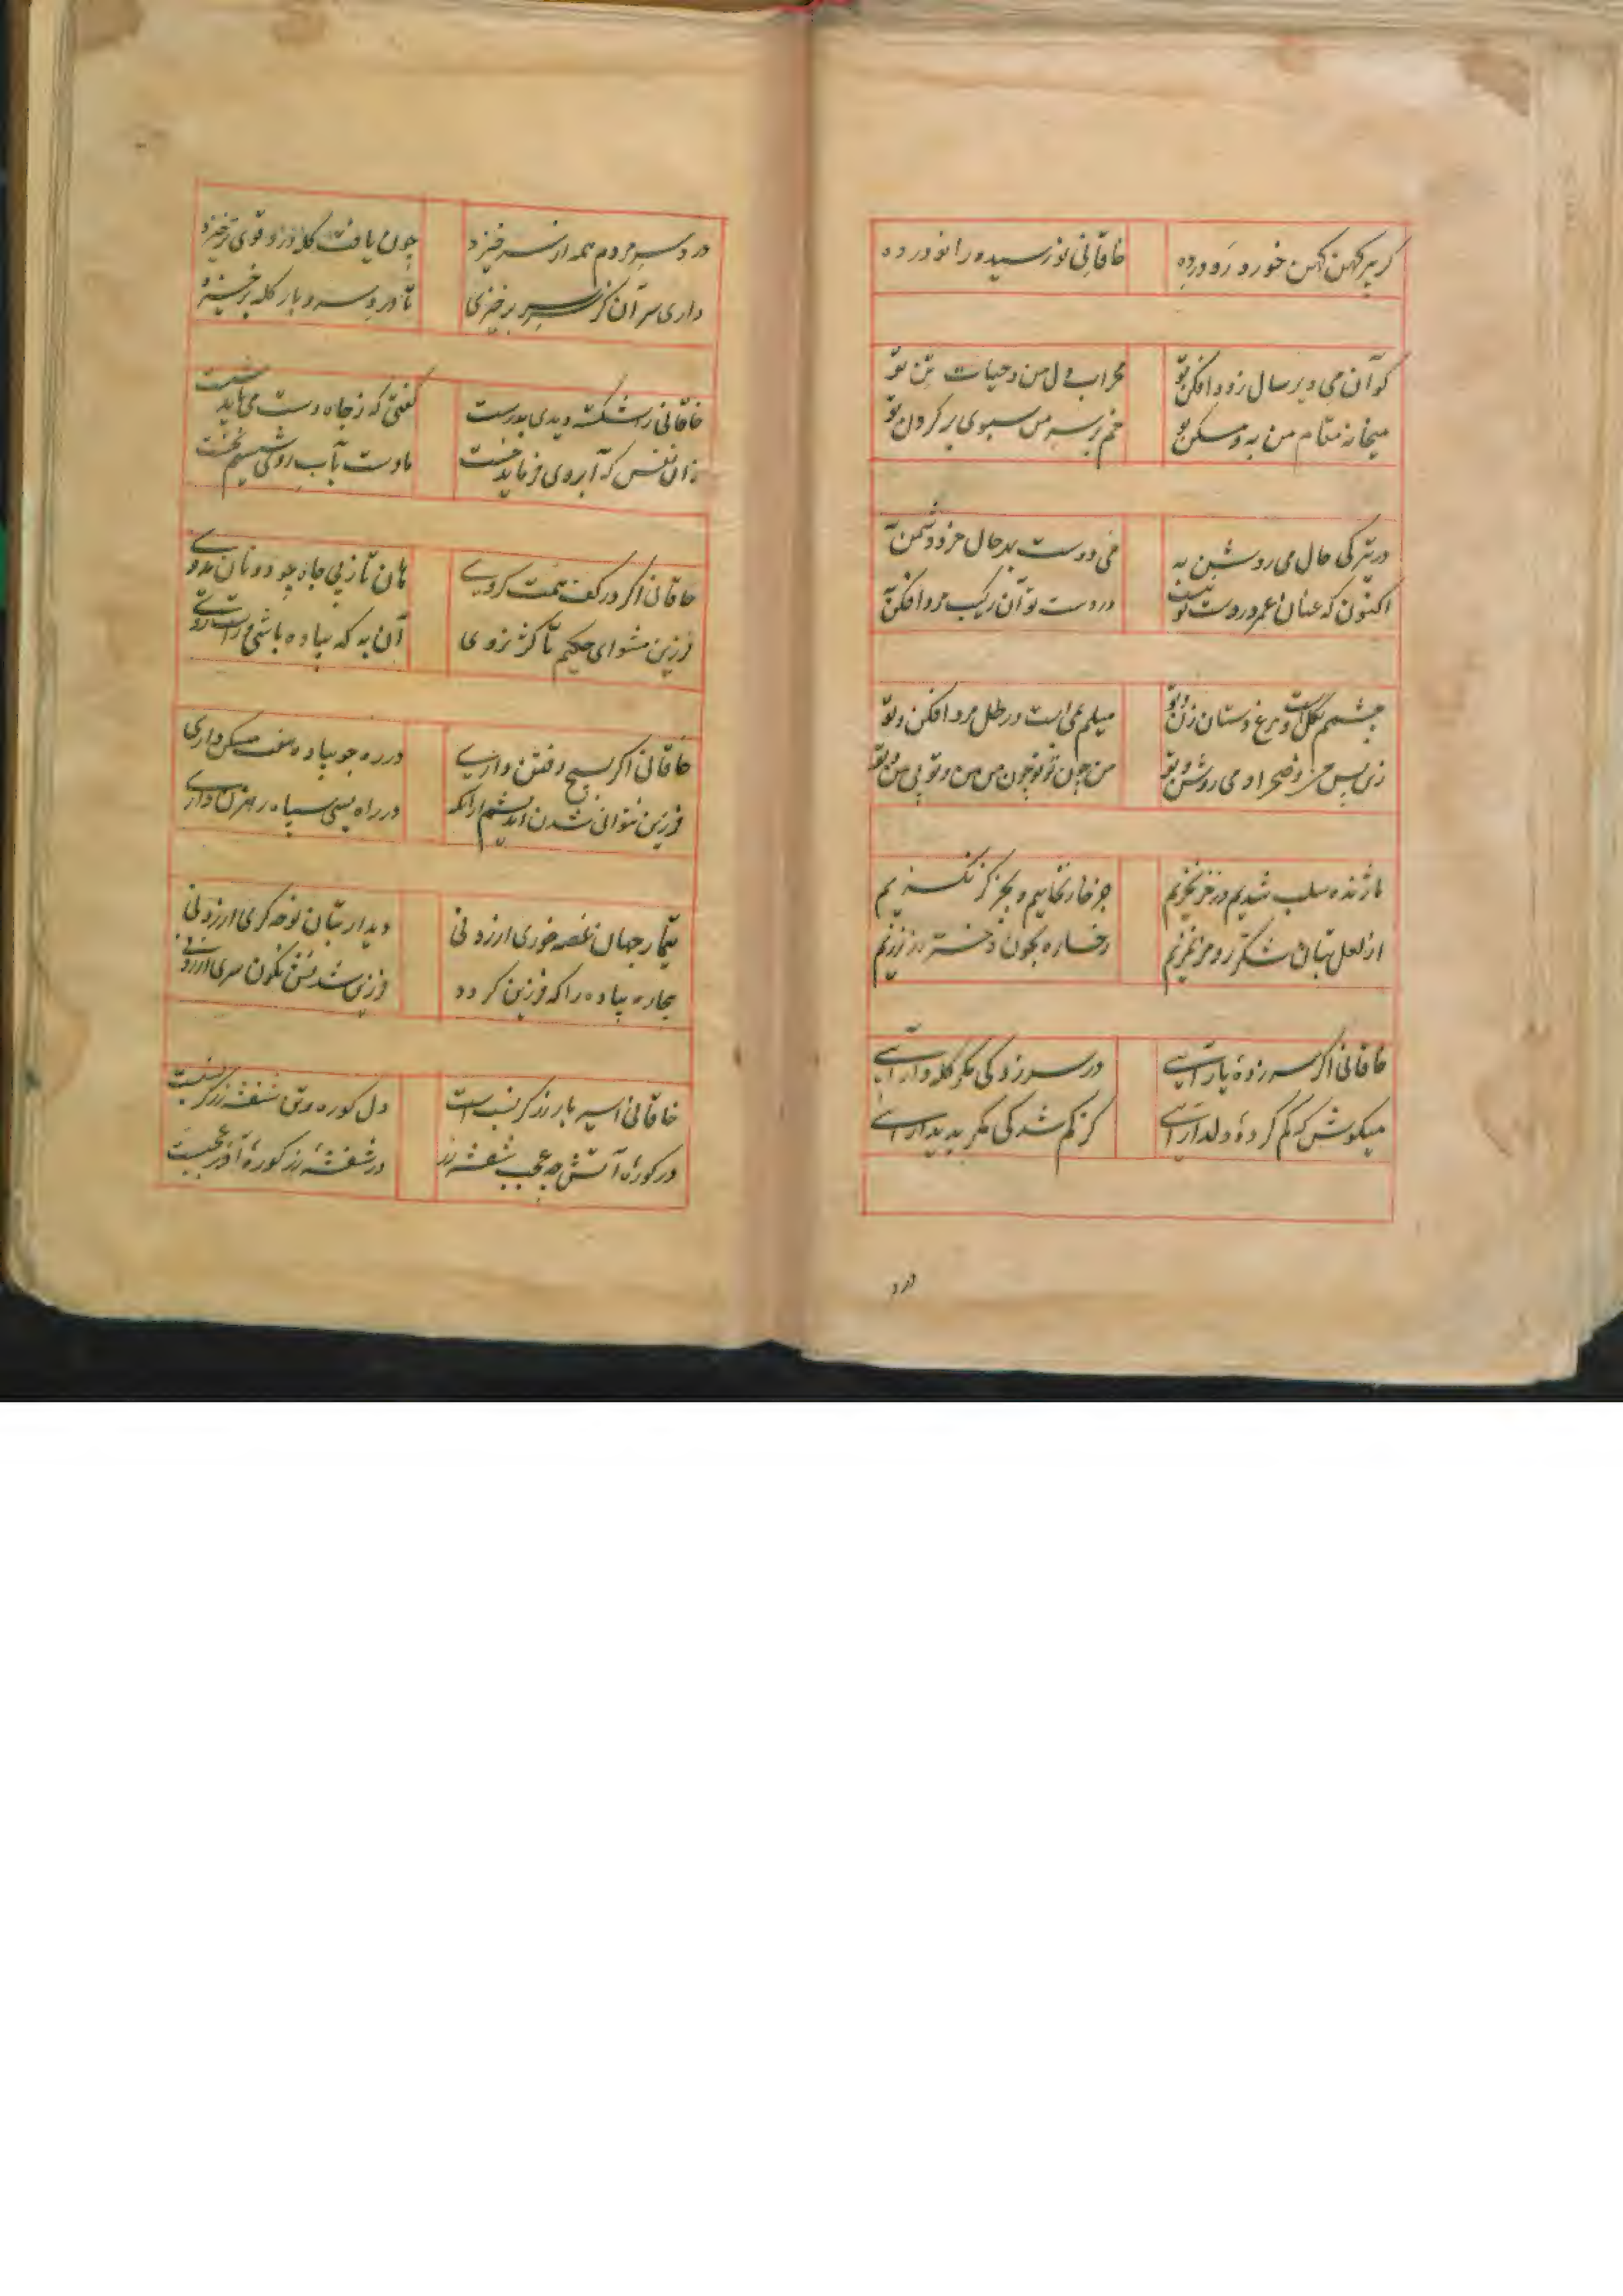 گر پیر کهن کهن خورد رو در ده
خاقانی نورسیده را نو در ده
کو آن می دیر سال زود افکن تو
محراب دل من و حیات تن تو
میخانه مقام من به و مسکن تو
خم بر سر من سبوی بر گردن تو
در تیرگی حال می روشن به
می دوست بهر حال خرد دشمن به
اکنون که عنان عمر در دست تو نیست
در دست تو آن رکیب مرد افکن به
چشم بگل است و مرغ دستان زن تو
میلم بمی است و رطل مرد افکن تو
زین پس من و صحرا و می روشن تو
من چون تو تو چون من من و تو بی من و تو
ما ژنده سلب شدیم در خز نخزیم
جز خار نخائیم و بجز گز نگزیم
از لعل بتان شکر رمز نمزیم
رخساره بخون دختر رز نرزیم
خاقانی اگر سر زده یار آئی
در سرزدگی مگر کله دار آئی
میکوش که گم کرده دلدار آئی
کز گم شدگی مگر پدیدار آئی
درد
درد سر مردم همه از سر خیزد
چون یافت کله درد قوی تر خیزد
داری سر آن کز سر سر برخیزی
تا درد سر و بار کله برخیزد
خاقانی را شکسته دیدی بدرست
گفتی که ز جاه دست می باید شست
زان نفس که آبروی فرماید جست
ما دست بآب روی شستیم نخست
خاقانی اگر در کف همت گروی
هان تا ز پی جاه چو دونان ندوی
فرزین مشو ای حکیم تا کژ نروی
آن به که پیاده باشی و راست روی
خاقانی اگر بسیج رفتن داری
در ره چو پیاده هفت مسکن داری
فرزین نتوانی شدن اندیشم از آنک
در راه بسی سپاه رهزن داری
تیمار جهان غصه خوری ارزد نی
دیدار بتان نوحه گری ارزد نی
بیچاره پیاده را که فرزین گردد
فرزین شدنش نگون سری ارزد نی
خاقانی اسیر یار زرگر نسب است
دل کوره و تن شفشه زرگر نسب است
در کوره آتش چه عجب شفشه زر
در شفشه زر کوره آذر عجب است